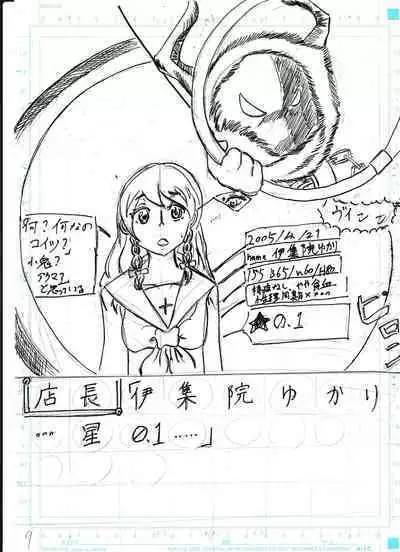 ヴィンン
2005/4/21
name 伊集院ゆかり
155 B65/W60/H80
0.1
ピ
ロ
何?何なの
コイツ?
小鬼?
アクマ?
と思っている
店長「伊集院ゆかり
…星 0.1……」
9